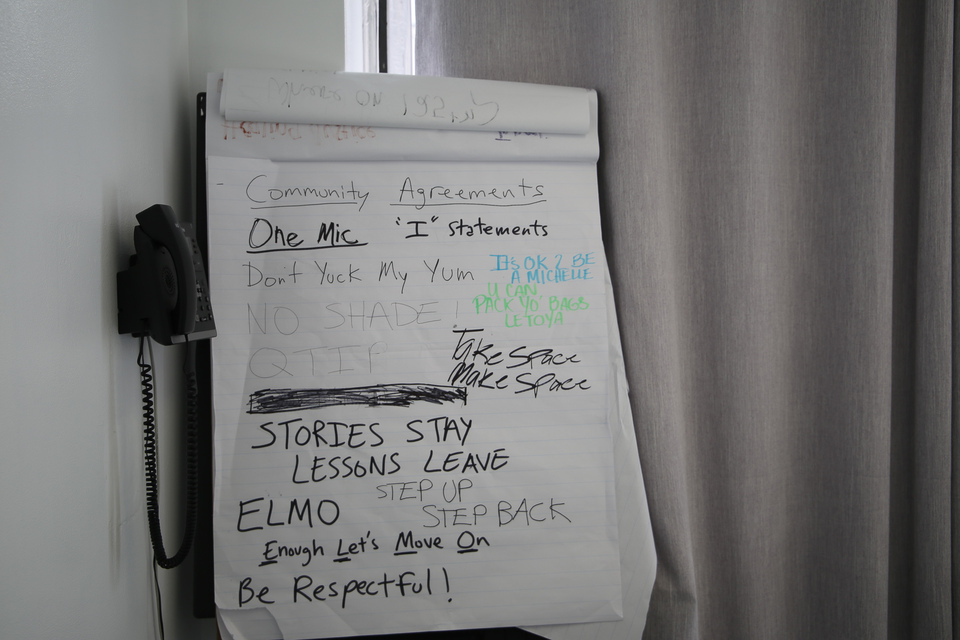 Community Agreements
One Mic "I" Statements
Don't Yuck My Yum
It's OK 2 BE
A MICHELLE
U CAN
PACK YO' BAGS
LETOYA
NO SHADE!
QTIF
Take Space
Make Space
STORIES STAY
LESSONS LEAVE
STEP UP
STEP BACK
ELMO
Enough Let's Move On
Be Respectful!